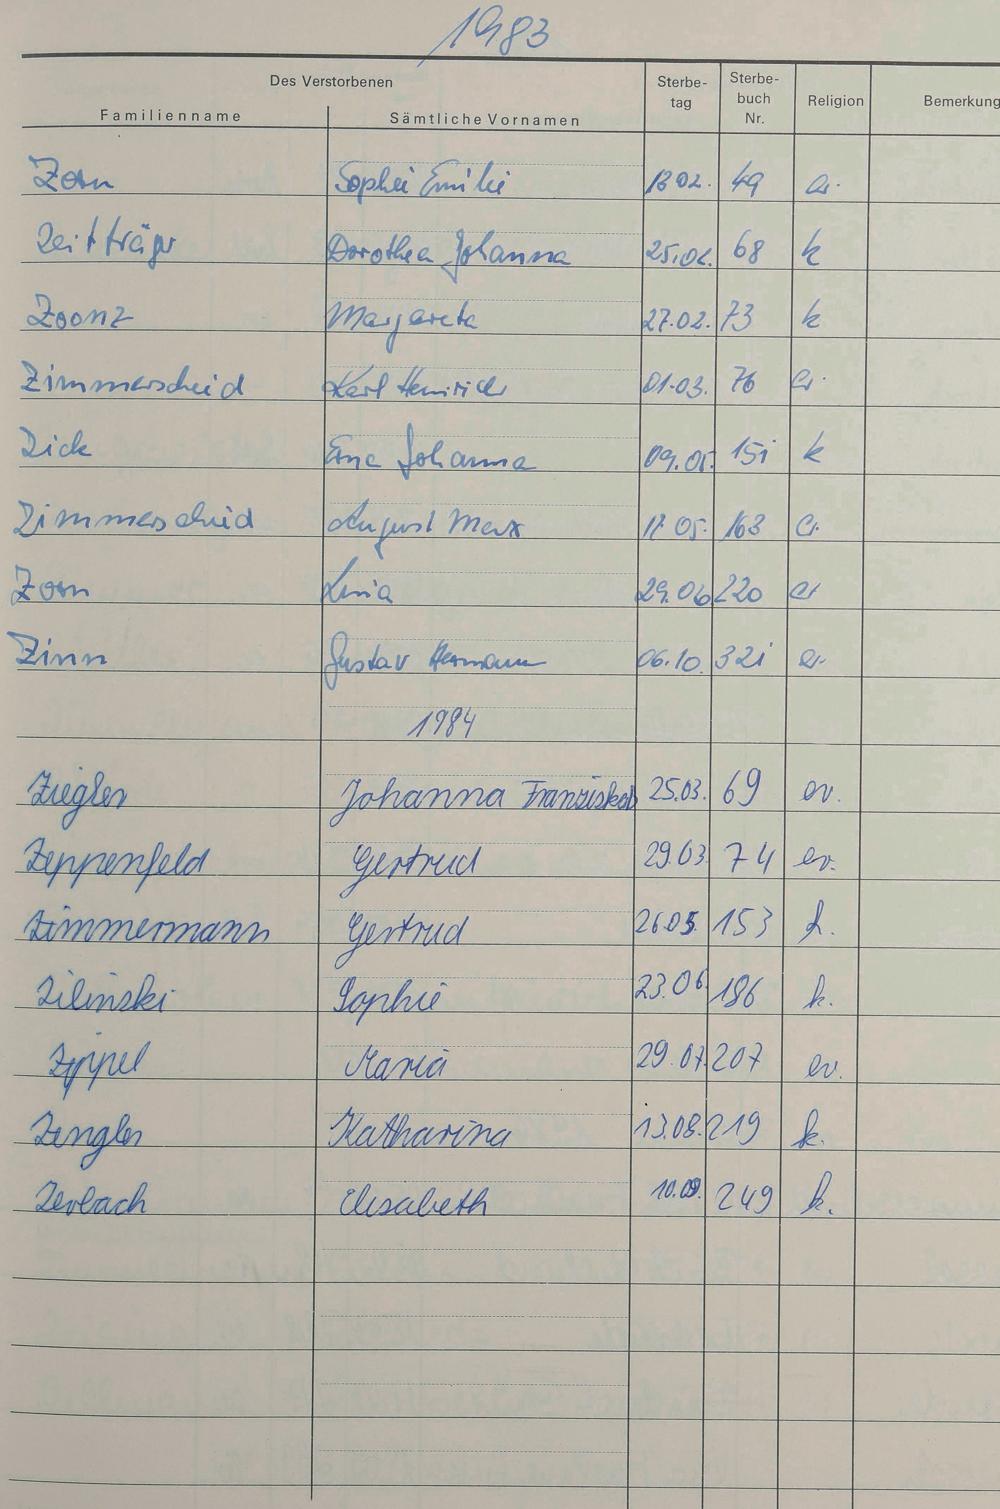 1983
Des Verstorbenen Sterbe- Sterbe- Religion Bemerkung
tag buch
Familienname Sämtliche Vornamen Nr.
Zorn Sophie Emilie 13.02. 49 ev.
Zeitträger Dorothea Johanna 25.02. 68 k
Zoonz Margareta 27.02. 73 k
Zimmerscheid Karl Heinrich 01.03. 76 ev.
Zick Erna Johanna 09.05. 151 k
Zimmerscheid August Max 17.05. 163 ev.
Zorn Lina 29.06 220 ev
Zinn Gustav Hermann 06.10. 321 ev.
1984
Ziegler Johanna Franziska 25.03. 69 ev.
Zeppenfeld Gertrud 29.03 74 ev.
Zimmermann Gertrud 26.05. 153 k.
Zilinski Sophie 23.06. 186 k.
Zippel Maria 29.07. 207 ev.
Zengler Katharina 13.08. 219 k.
Zerbach Elisabeth 10.09. 249 k.